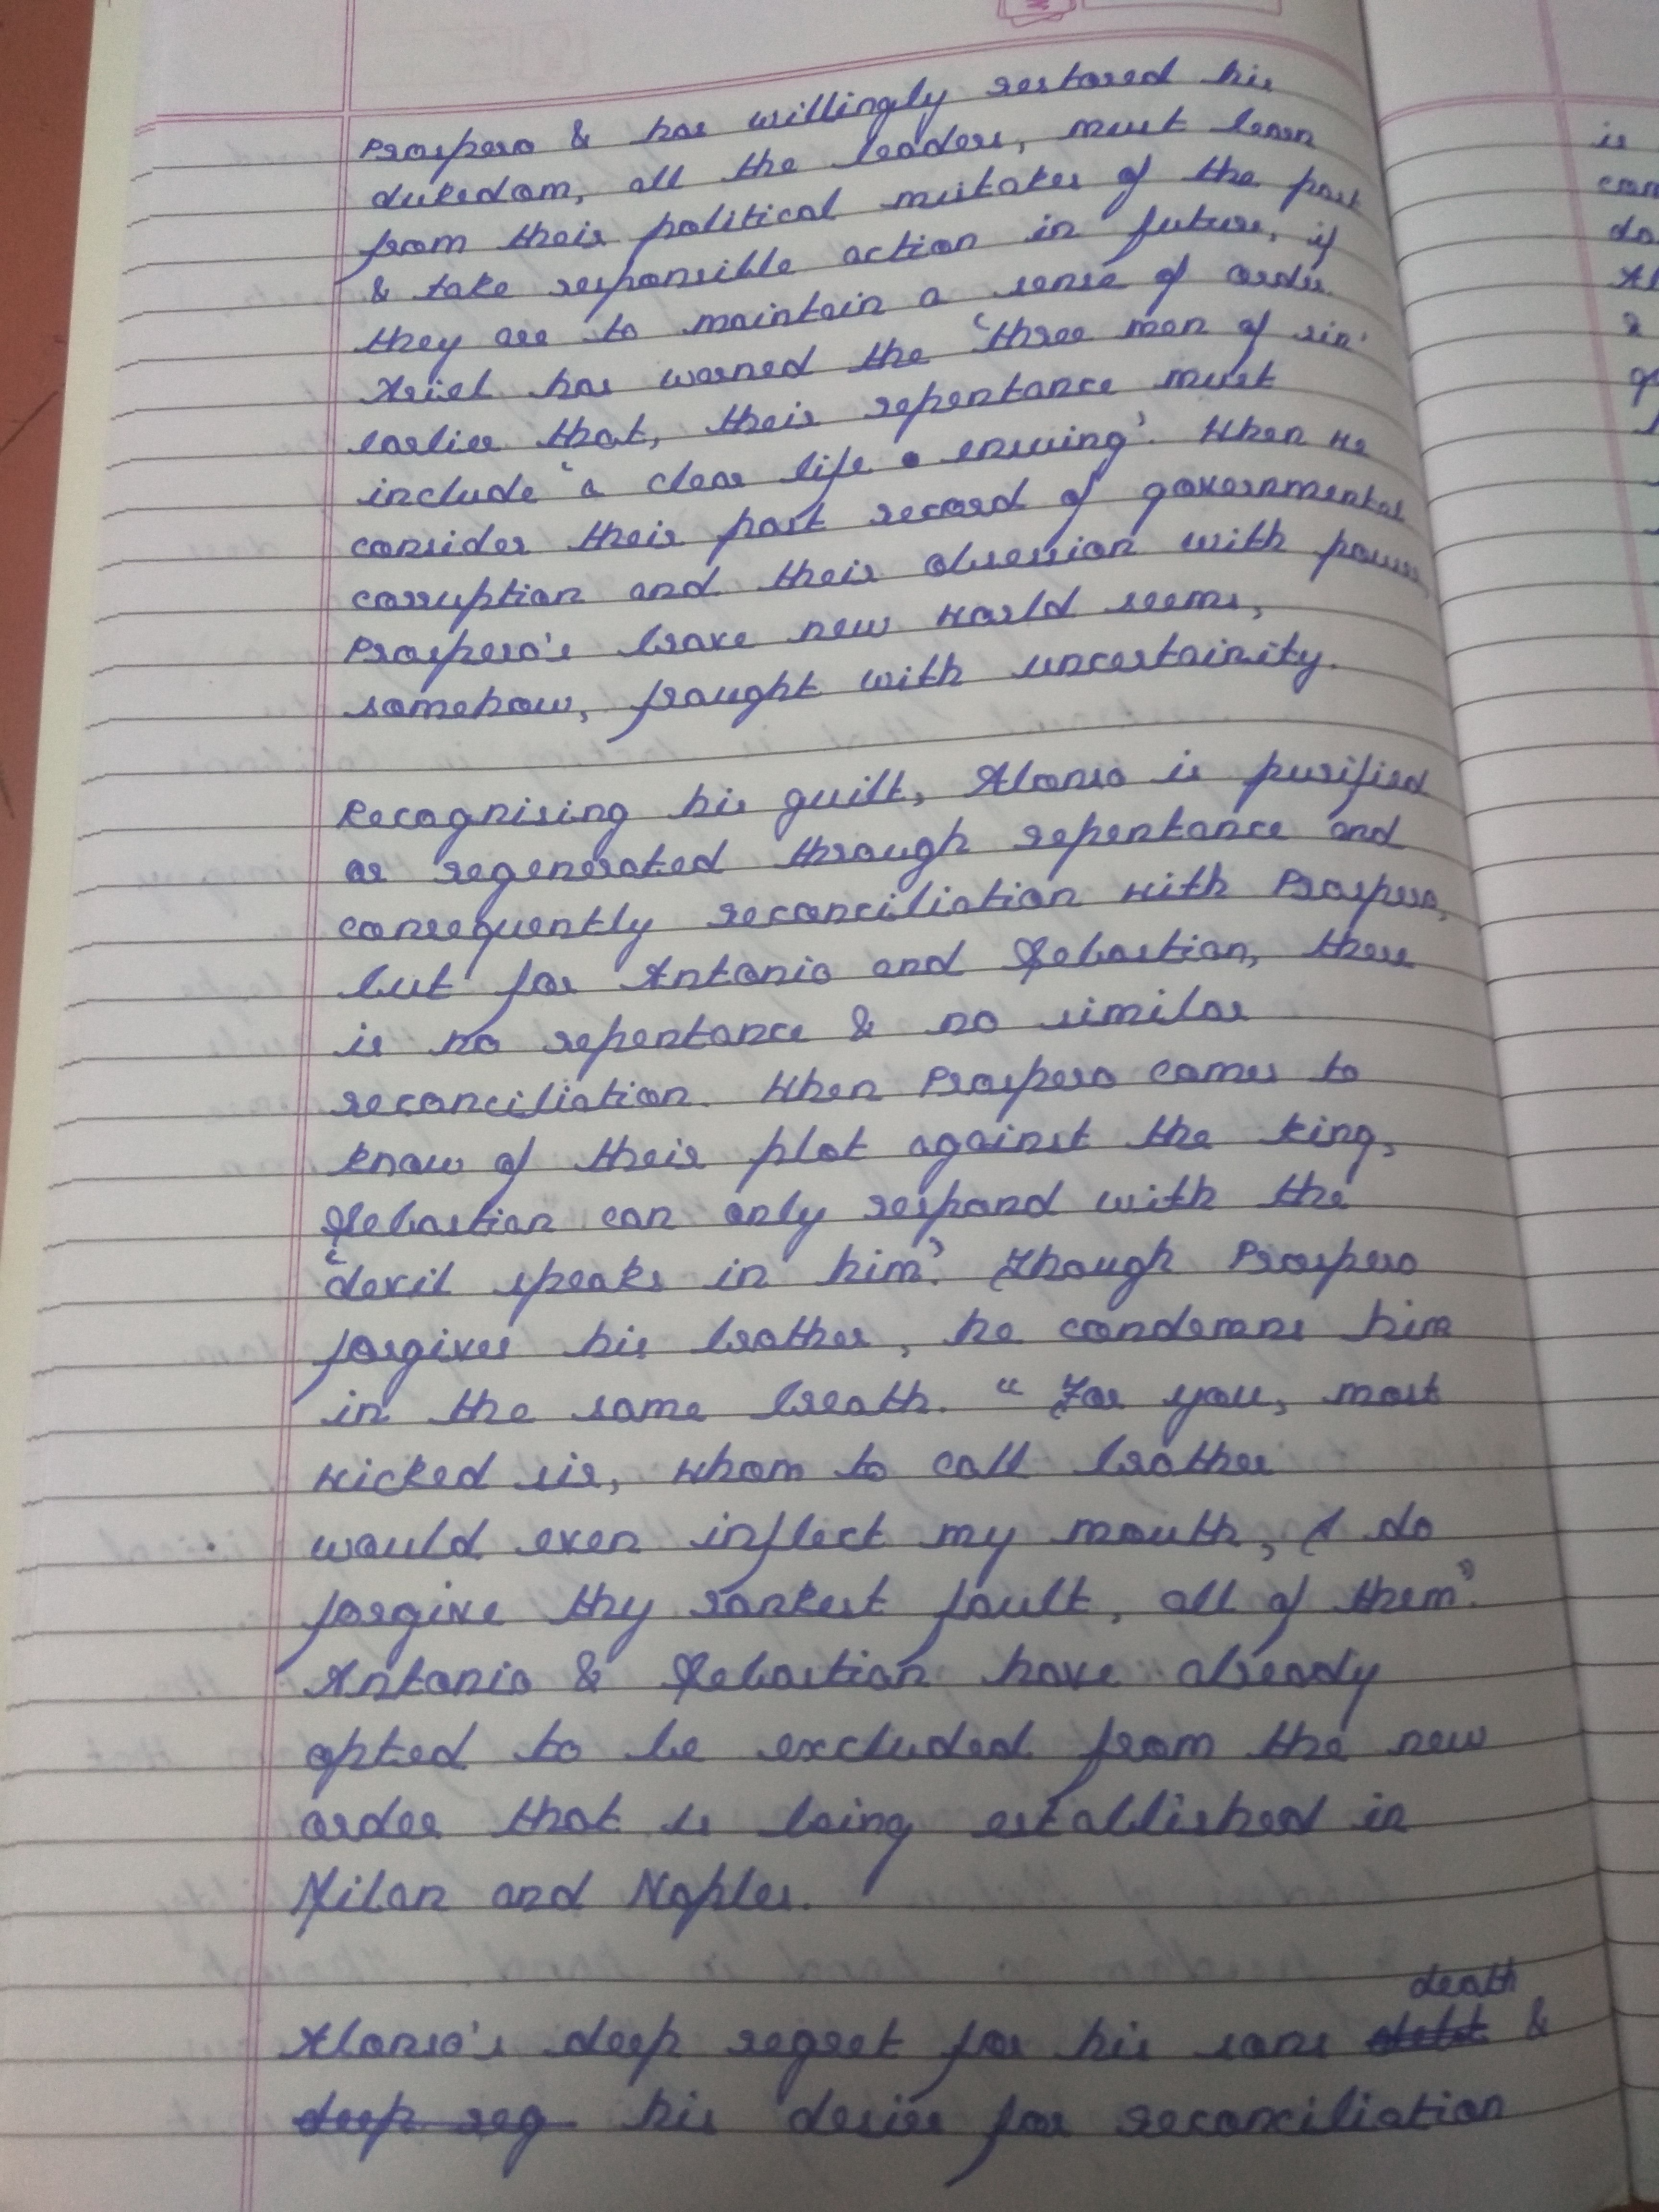 Prospero & has willingly restored his
dukedom, all the leaders, must learn
from their political mistakes of the past
& take responsible action in future, if
they are to maintain a sense of order.
Ariel has warned the 'three men of sin'
earlier that, their repentance must
include 'a clear life ensuing'. When we
consider their past record of governmental
corruption and their obsession with power,
Prospero's brave new world seems,
somehow, fraught with uncertainity.
Recognising his guilt, Alonso is purified
or regenerated through repentance and
consequently reconciliation with Prospero,
but for Antonio and Sebastian, there
is no repentance & no similar
reconciliation. When Prospero comes to
know of their plot against the king,
Sebastian can only respond with the
'devil speaks in him'. Though Prospero
forgives his brother, he condemns him
in the same breath. "For you, most
wicked sir, whom to call brother
would even inflect my mouth, I do
forgive thy rankest fault, all of them".
Antonio & Sebastian have already
opted to be excluded from the new
order that is being established in
Milan and Naples.
death
Alonso's deep regret for his sons debt &
deep reg his desire for reconciliation
is
can
do
&